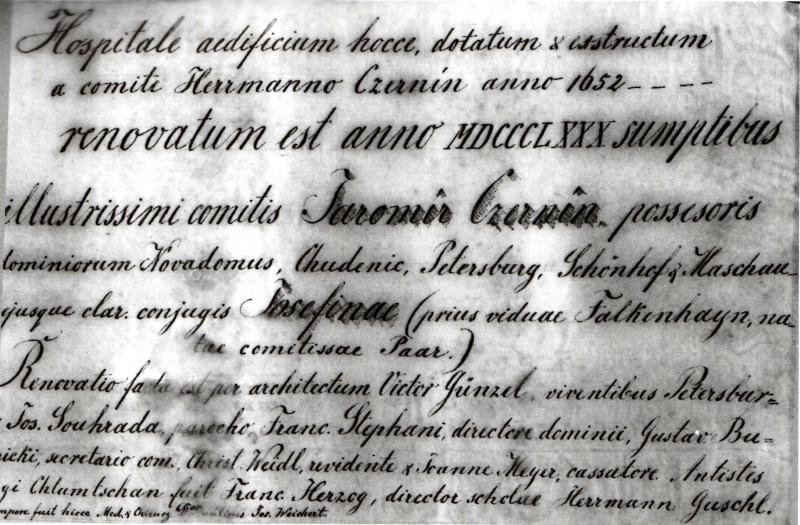 Hospitale aedificium hocce, dotatum & exstructum
a comite Herrmanno Czernín anno 1652 - - - -
renovatum est anno MDCCCLXXX sumptibus
illustrissimi comitis Jaromir Czernin. possesoris
dominiorum Novadomus, Chudenic, Petersburg, Schönhof & Maschau
ejusque clar. conjugis Josefinae (prius viduae Falkenhayn, na-
tae comitissae Paar.)
Renovatio facta est per architectum Victor Günzel, viventibus Petersbur=
Jos. Souhrada, parocho, Franc. Stephani, directore dominii, Gustav Bu-
nicki, secretario com., Christ. Weidl, revidente & Joanne Meyer, cassatore. Antistes
gi Chlumtschan fuit Franc. Herzog, director scholae Herrmann Guschl.
mpore fuit hicce Med. & Chirurg. Jos. Weichert.